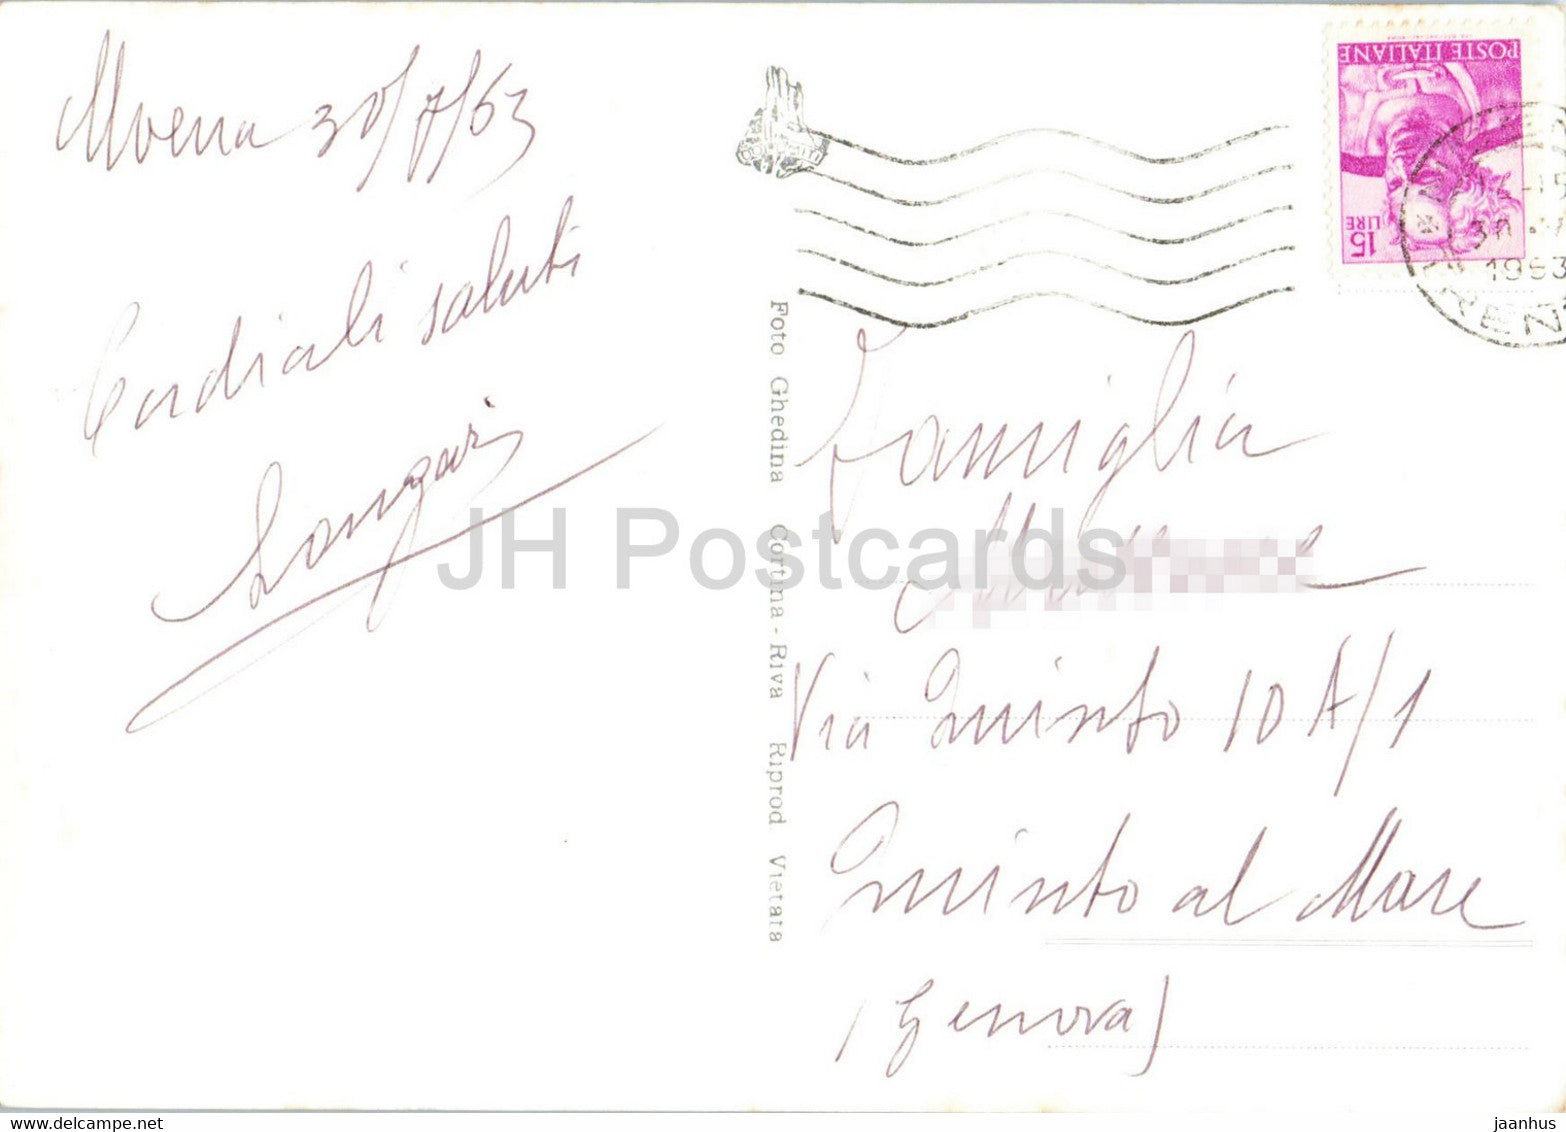 Moena 30/7/63
Cordiali saluti
POSTE ITALIANE
15
LIRE
1963
Foto Ghedina Cortina - Riva Riprod Vietata
Famiglia
Via Quinto 10 A/1
Quinto al Mare
(Genova)
JH Postcards
jaanhus
www.delcampe.net